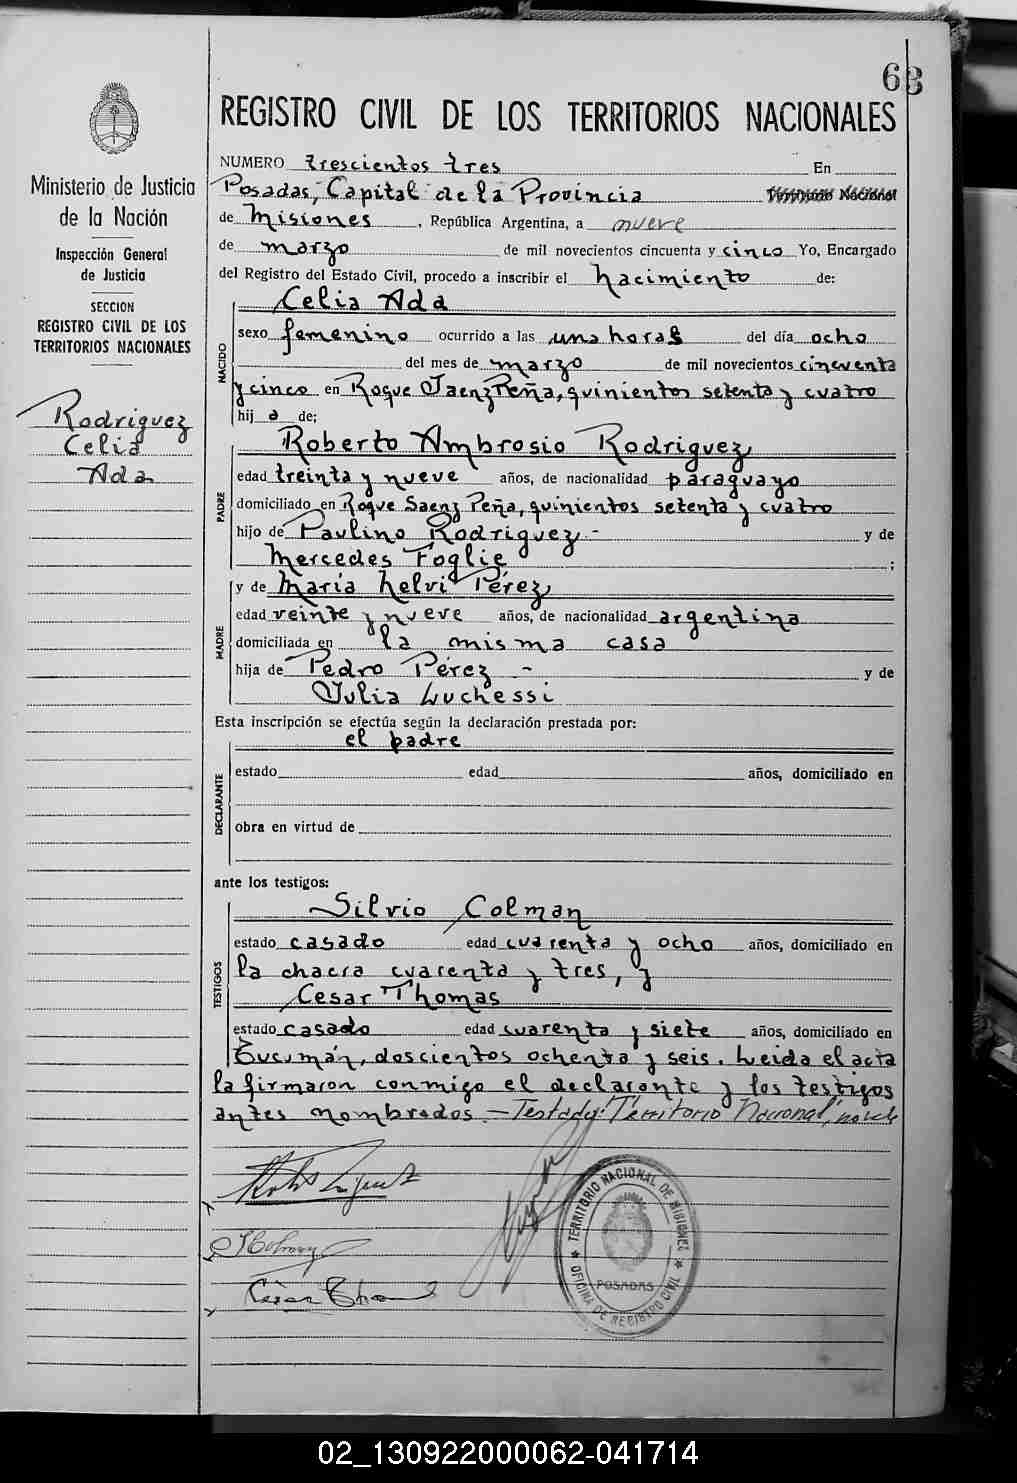 63
REGISTRO CIVIL DE LOS TERRITORIOS NACIONALES
Ministerio de Justicia
de la Nación
Inspección General
de Justicia
SECCION
REGISTRO CIVIL DE LOS
TERRITORIOS NACIONALES
Rodriguez
Celia
Ada
NUMERO trescientos tres En
Posadas, Capital de la Provincia Territorio Nacional
de Misiones, República Argentina, a nueve
de marzo de mil novecientos cincuenta y cinco Yo, Encargado
del Registro del Estado Civil, procedo a inscribir el nacimiento de:
NACIDO
Celia Ada
sexo femenino ocurrido a las una horas del día ocho
del mes de marzo de mil novecientos cincuenta
y cinco en Roque Saenz Peña, quinientos setenta y cuatro
hij a de;
PADRE
Roberto Ambrosio Rodriguez
edad treinta y nueve años, de nacionalidad paraguayo
domiciliado en Roque Saenz Peña, quinientos setenta y cuatro
hijo de Paulino Rodriguez - y de
Mercedes Foglie ;
MADRE
y de María Nelvi Pérez
edad veinte y nueve años, de nacionalidad argentina
domiciliada en la misma casa
hija de Pedro Pérez - y de
Julia Luchessi
Esta inscripción se efectúa según la declaración prestada por:
el padre
DECLARANTE
estado edad años, domiciliado en
obra en virtud de
ante los testigos:
TESTIGOS
Silvio Colman
estado casado edad cuarenta y ocho años, domiciliado en
la chacra cuarenta y tres, y
Cesar Thomas
estado casado edad cuarenta y siete años, domiciliado en
Tucumán, doscientos ochenta y seis. Leida el acta
la firmaron conmigo el declarante y los testigos
antes nombrados.- Testado: "Territorio Nacional, no vale
TERRITORIO NACIONAL DE MISIONES
POSADAS
OFICINA DE REGISTRO CIVIL
02_130922000062-041714